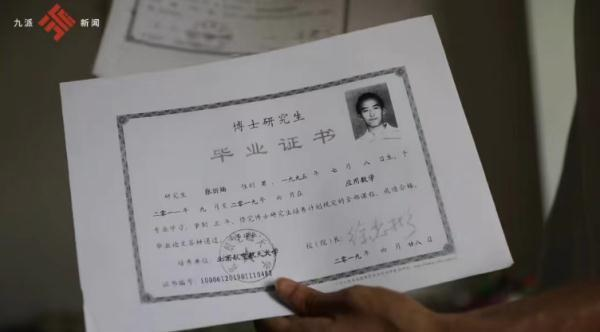 九派 新闻
博士研究生
毕业证书
研究生 张 性别 男, 一九九五年 七月 八日生, 于
二〇一一年 九月至二〇一九年 六月在 应用数学
专业学习, 学制 三 年, 修完博士研究生培养计划规定的全部课程, 成绩合格,
毕业论文答辩通过,
培养单位: 北京航空航天大学 校(院)长:
证书编号: 二〇一九年 月 八日